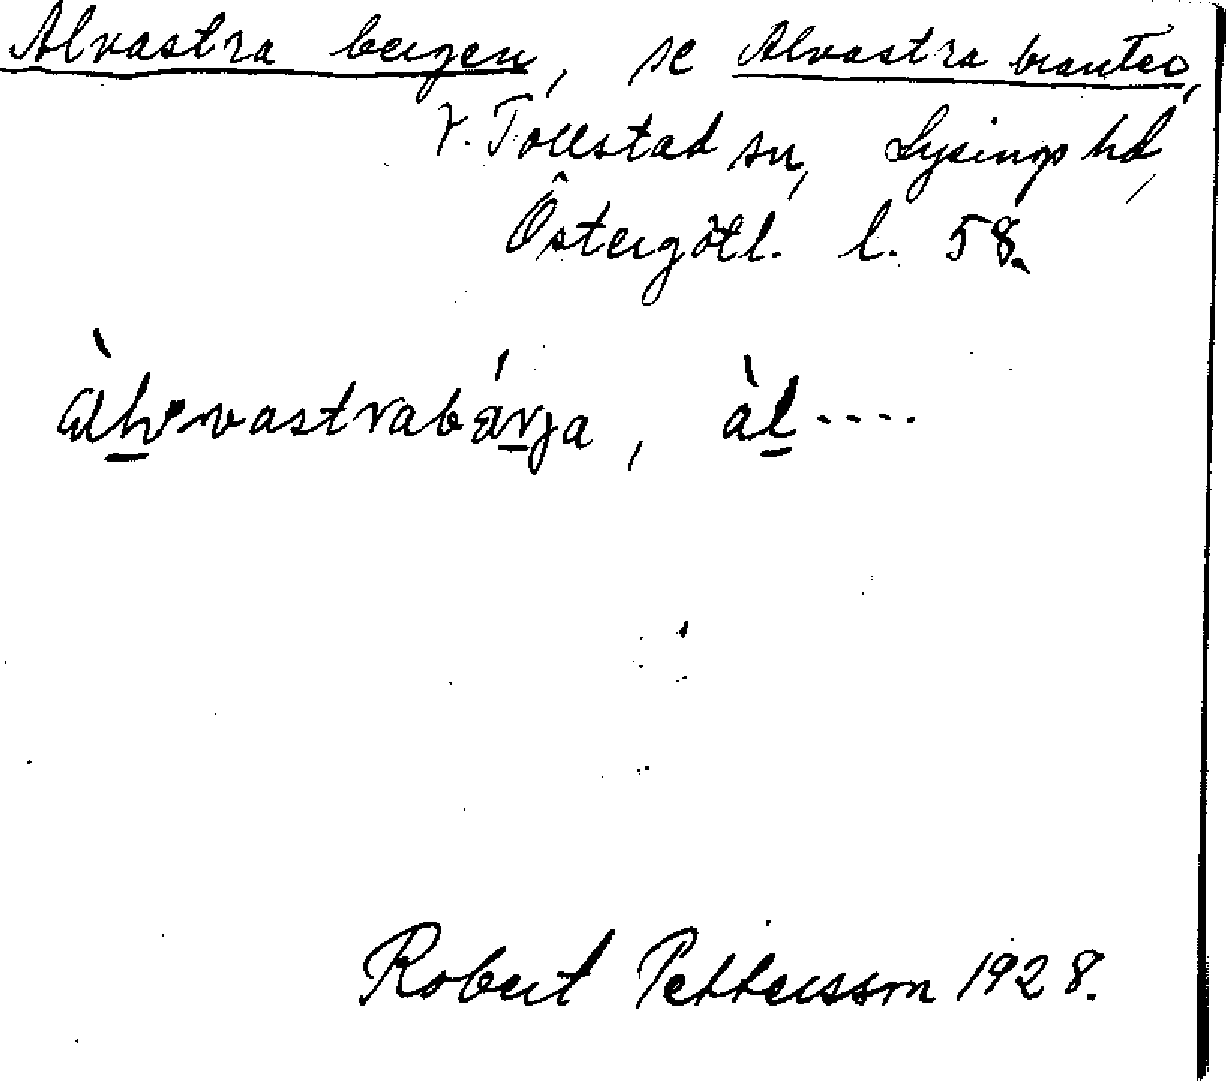 Alvastra bergen, se Alvastra branter,
V. Tollstad sn, Lysings hd,
Östergötl. l. 58.
àl....
Robert Pettersson 1928.